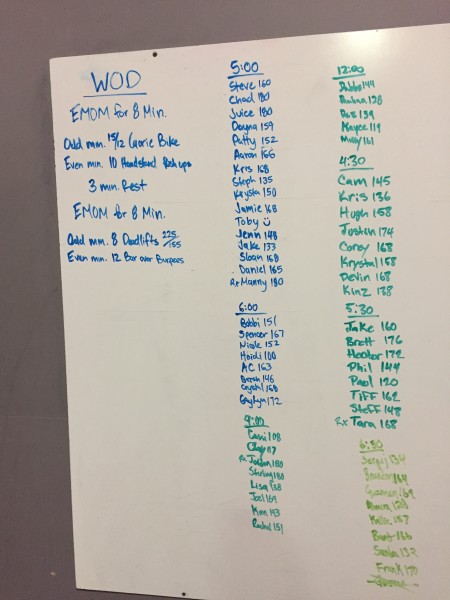 WOD
EMOM for 8 Min.
Odd min. 15/12 Calorie Bike
Even min. 10 Handstand Push ups
3 min. Rest
EMOM for 8 Min.
Odd min. 8 Deadlifts 225/155
Even min. 12 Bar over Burpees
5:00
Steve 160
Chad 180
Juice 180
Dayna 159
Patty 152
Aaron 166
Kris 168
Steph 135
Krysta 150
Jamie 168
Toby
Jenn 148
Jake 133
Sloan 168
Daniel 165
Rx Manny 180
6:00
Bobbi 151
Spencer 167
Nicole 152
Heidi 100
AC 163
146
Crystal 168
172
9:00
Cassi 108
Clay 117
Rx Jordan 180
Sterling 180
Lisa 138
Joel 169
Kim 143
Rachel 151
12:00
149
128
139
Kaycee 119
161
4:30
Cam 145
Kris 136
Hugh 158
Justan 174
Corey 168
Krystal 158
Devin 168
Kinz 138
5:30
Jake 160
Brett 176
172
Phil 144
Paul 120
Tiff 162
Steff 148
Rx Tara 168
6:30
134
164
Guzman
157
166
132
Frank 170